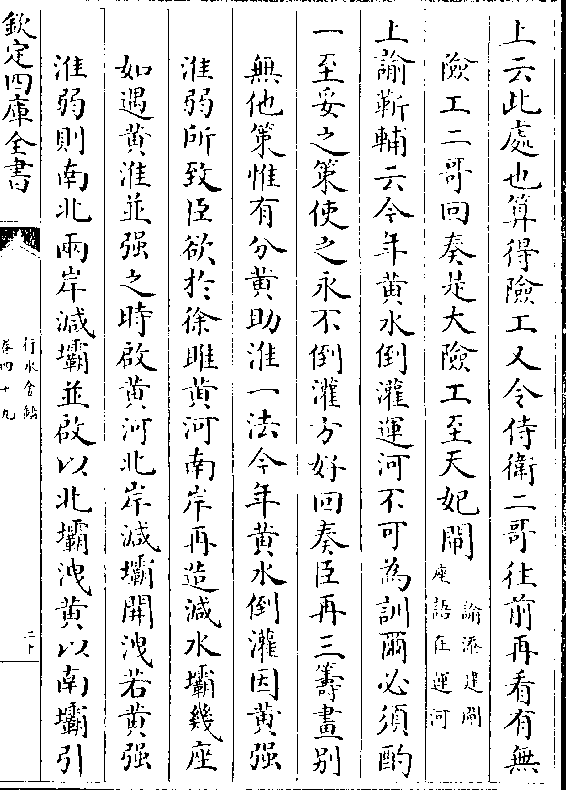 上云此處也算得險工又令侍衛二哥往前再看有無
險工二哥回奏是大險工至天妃閘
諭添建閘
座語在運河
上諭靳輔云今年黃水倒灌運河不可為訓爾必須酌
一至妥之策使之永不倒灌方好回奏臣再三籌畫别
無他策惟有分黃助淮一法今年黃水倒灌因黃强
淮弱所致臣欲於徐睢黃河南岸再造減水壩幾座
如遇黃淮並强之時啟黃河北岸減壩開洩若黃强
淮弱則南北兩岸減壩並啟以北壩洩黃以南壩引
欽定四庫全書
行水金鑑
卷四十九
二十